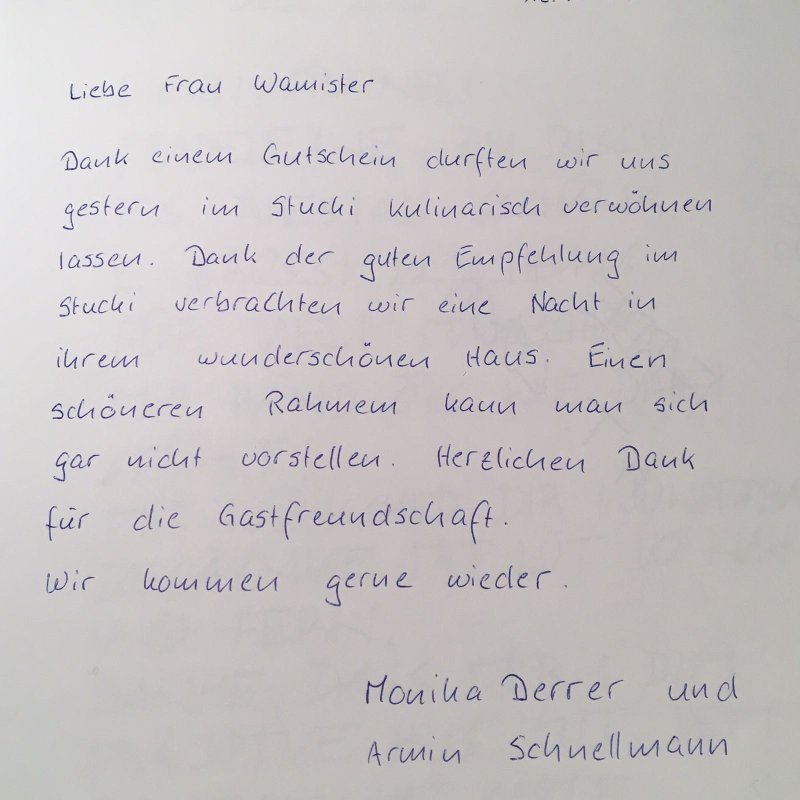 Liebe Frau Wamister
Dank einem Gutschein durften wir uns
gestern im Stucki kulinarisch verwöhnen
lassen. Dank der guten Empfehlung im
Stucki verbrachten wir eine Nacht in
ihrem wunderschönen Haus. Einen
schöneren Rahmem kann man sich
gar nicht vorstellen. Herzlichen Dank
für die Gastfreundschaft.
Wir kommen gerne wieder.
Monika Derrer und
Armin Schnellmann